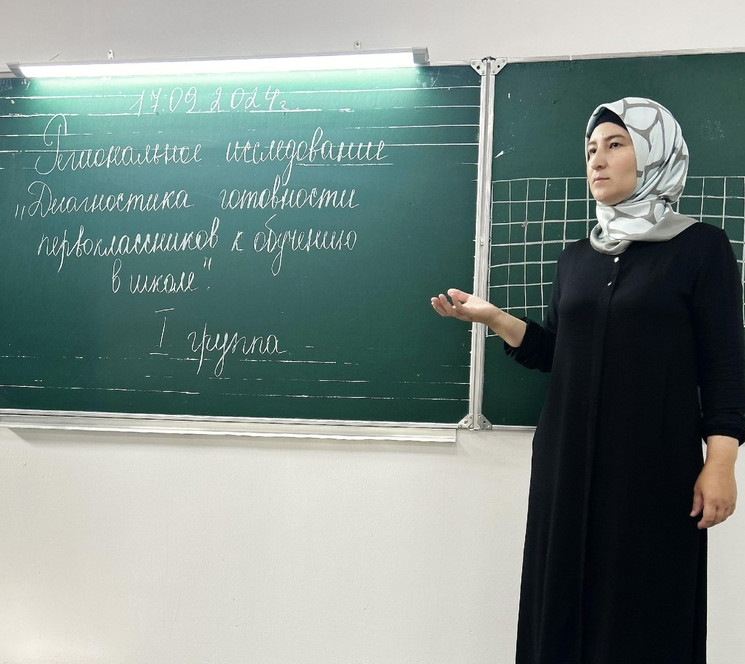 17.09.2024г.
Региональное исследование
„Диагностика готовности
первоклассников к обучению
в школе".
I группа